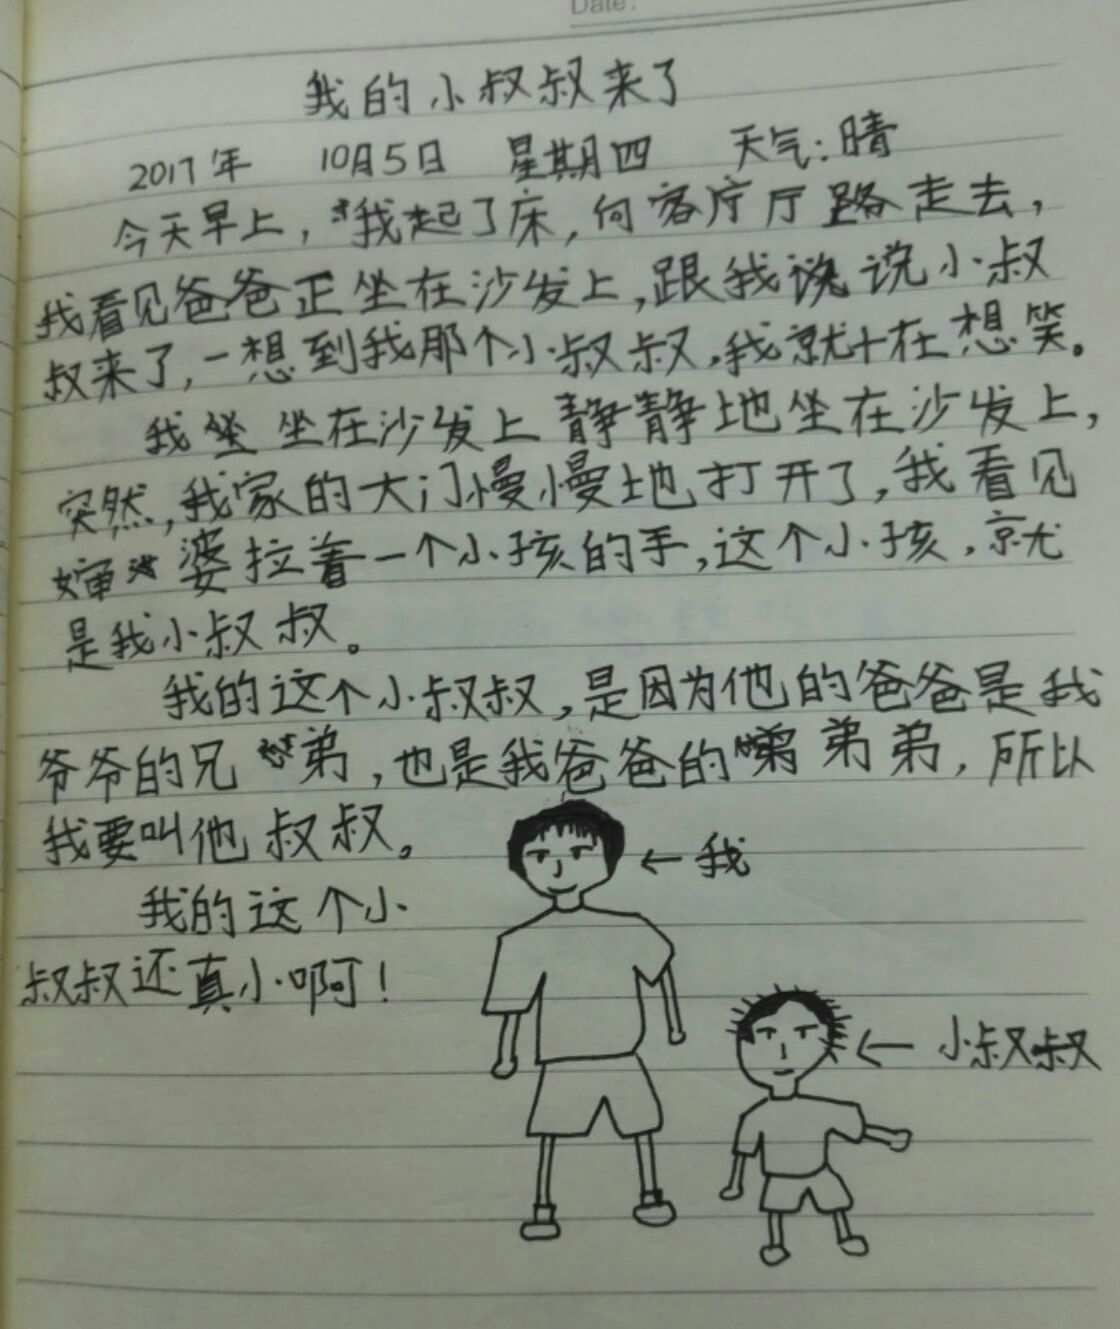 Date:
我的小叔叔来了
2017年 10月5日 星期四 天气:晴
今天早上,我起了床,向客厅厅路走去,
我看见爸爸正坐在沙发上,跟我说说小叔
叔来了,一想到我那个小叔叔,我就十在想笑。
我坐坐在沙发上静静地坐在沙发上,
突然,我家的大门慢慢地打开了,我看见
婶婆拉着一个小孩的手,这个小孩,就
是我小叔叔。
我的这个小叔叔,是因为他的爸爸是我
爷爷的兄弟,也是我爸爸的弟弟,所以
我要叫他叔叔。
←我
我的这个小
叔叔还真小啊!
←小叔叔